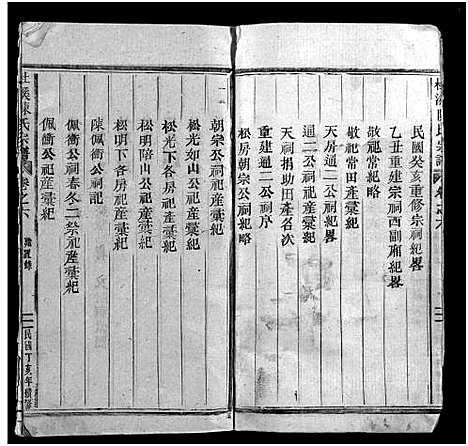 民國癸亥重修宗祠紀畧
乙丑重建宗祠西副廂紀畧
敬祀常紀略
敬祀常祀田產彙紀
天房通二公祠紀畧
通二公祠祀產彙紀
天祠捐助田產名次
重建通二公祠序
松房朝宗公祠紀略
朝宗公祠祀產彙紀
松光如山公祀產彙紀
松光下各房祀產彙紀
松明陪山公祀產彙紀
松明下各房祀產彙紀
陳佩衝公祠記
佩衝公祠春冬二祭祀產彙紀
佩衝公祀產彙紀
陳氏宗譜 卷之六
民國丁亥年續修